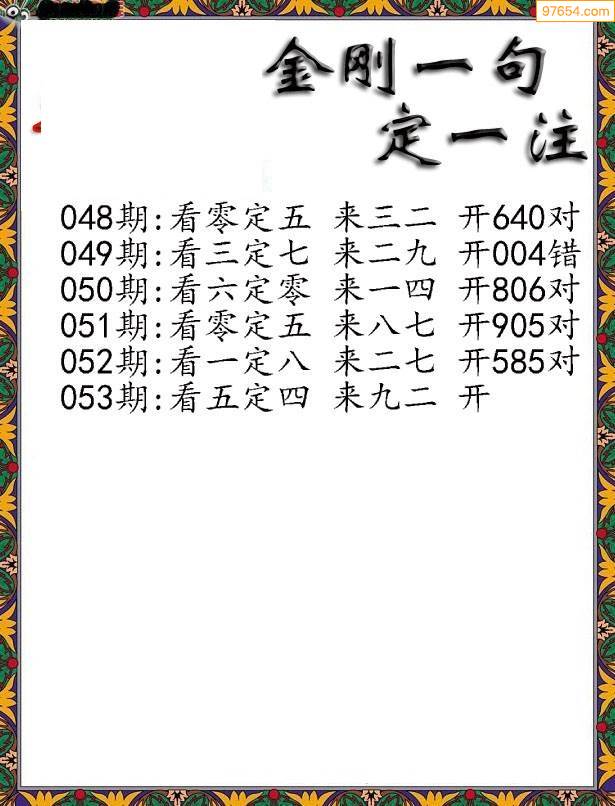 97654.com
金刚一句
定一注
048期:看零定五 来三二 开640对
049期:看三定七 来二九 开004错
050期:看六定零 来一四 开806对
051期:看零定五 来八七 开905对
052期:看一定八 来二七 开585对
053期:看五定四 来九二 开